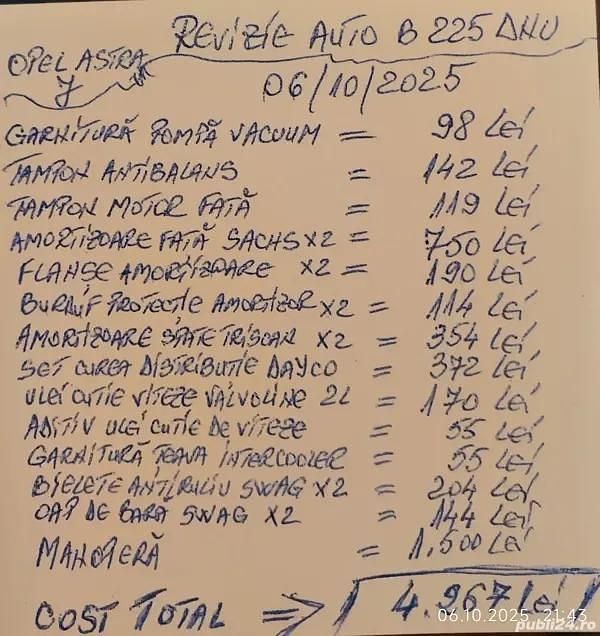 REVIZIE AUTO B 225 DHU
OPEL ASTRA
J
06/10/2025
GARNITURĂ POMPĂ VACUUM = 98 Lei
TAMPON ANTIBALANS = 142 Lei
TAMPON MOTOR FAȚĂ = 119 Lei
AMORTIZOARE FAȚĂ SACHS X2 = 750 Lei
FLANSE AMORTIZOARE X2 = 190 Lei
BURDUF PROTECTIE AMORTIZOR X2 = 114 Lei
AMORTIZOARE SPATE TRISCAN X2 = 354 Lei
SET CUREA DISTRIBUTIE DAYCO = 372 Lei
ULEI CUTIE VITEZE VALVOLINE 2L = 170 Lei
ADITIV ULEI CUTIE DE VITEZE = 55 Lei
GARNITURĂ TEAVA INTERCOOLER = 55 Lei
BIELETE ANTIRULIU SWAG X2 = 204 Lei
CAP DE BARĂ SWAG X2 = 144 Lei
MANOPERĂ = 1.500 Lei
COST TOTAL => 4.967 Lei
06.10.2025 21:43
publi24.ro